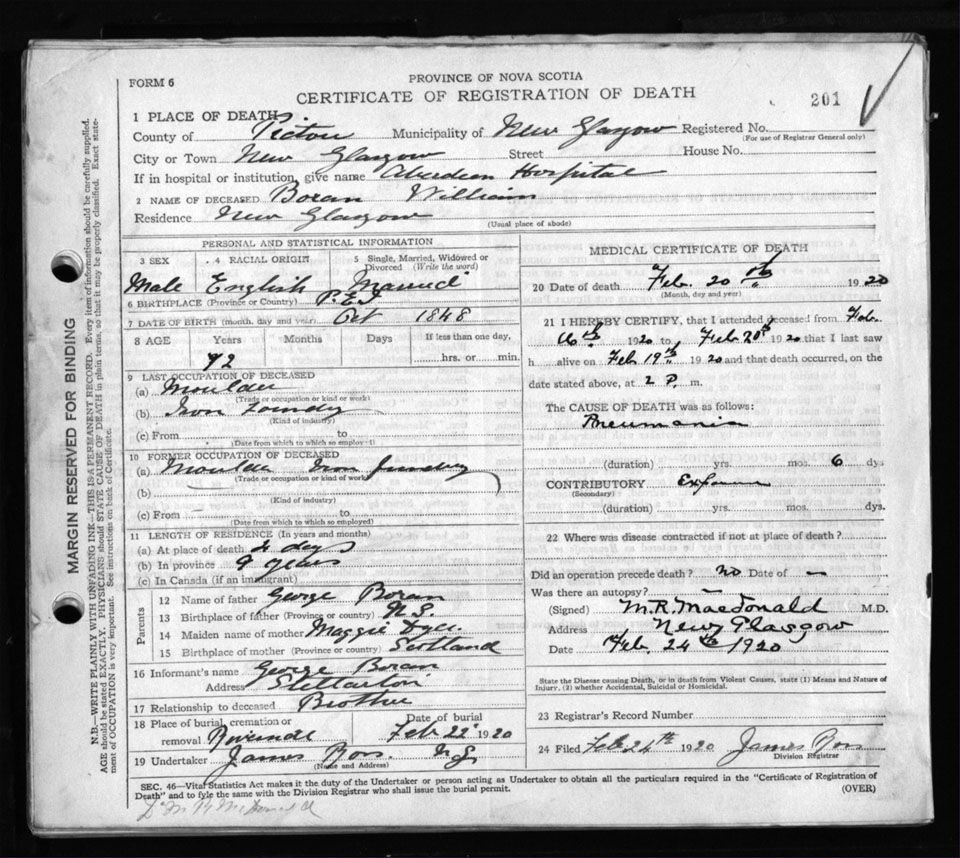 FORM 6
PROVINCE OF NOVA SCOTIA
CERTIFICATE OF REGISTRATION OF DEATH
201
1 PLACE OF DEATH
County of Pictou Municipality of New Glasgow Registered No.
(For use of Registrar General only)
City or Town New Glasgow Street House No.
If in hospital or institution, give name Aberdeen Hospital
2 NAME OF DECEASED Boran William
Residence New Glasgow
(Usual place of abode)
PERSONAL AND STATISTICAL INFORMATION
3 SEX 4 RACIAL ORIGIN 5 Single, Married, Widowed or Divorced (Write the word)
Male English Married
6 BIRTHPLACE (Province or Country) P.E.I
7 DATE OF BIRTH (month, day and year) Oct 1848
8 AGE Years Months Days If less than one day,
72 hrs. or min.
9 LAST OCCUPATION OF DECEASED
(a) Moulder
(Trade or occupation or kind or work)
(b) Iron Foundry
(Kind of industry)
(c) From to
(Date from which to which so employed)
10 FORMER OCCUPATION OF DECEASED
(a) Moulder Iron foundry
(Trade or occupation or kind of work)
(b)
(Kind of industry)
(c) From to
(Date from which to which so employed)
11 LENGTH OF RESIDENCE (In years and months)
(a) At place of death 4 days
(b) In province 9 years
(c) In Canada (if an immigrant)
Parents
12 Name of father George Boran
13 Birthplace of father (Province or country) N.S.
14 Maiden name of mother Maggie
15 Birthplace of mother (Province or country) Scotland
16 Informant's name George Boran
Address Stellarton
17 Relationship to deceased Brother
18 Place of burial, cremation or removal Riverside Date of burial Feb 22 1920
19 Undertaker James Ross N.G.
(Name and Address)
MEDICAL CERTIFICATE OF DEATH
20 Date of death Feb. 20th 1920
(Month, day and year)
21 I HEREBY CERTIFY, that I attended deceased from Feb.
16th 1920 to Feb 20th 1920 that I last saw
h alive on Feb 19th 1920 and that death occurred, on the
date stated above, at 2 P. m.
The CAUSE OF DEATH was as follows:
Pneumonia
(duration) yrs. mos. 6 dys
CONTRIBUTORY Exposure
(Secondary)
(duration) yrs. mos. dys.
22 Where was disease contracted if not at place of death?
Did an operation precede death? no Date of –
Was there an autopsy? –
(Signed) M.R. Macdonald M.D.
Address New Glasgow
Date Feb. 24th 1920
State the Disease causing Death, or in death from Violent Causes, state (1) Means and Nature of
Injury, (2) whether Accidental, Suicidal or Homicidal.
23 Registrar's Record Number
24 Filed Feb 24th 1920 James Ross
Division Registrar
SEC. 46—Vital Statistics Act makes it the duty of the Undertaker or person acting as Undertaker to obtain all the particulars required in the "Certificate of Registration of
Death" and to fyle the same with the Division Registrar who shall issue the burial permit.
(OVER)
MARGIN RESERVED FOR BINDING
N.B.—WRITE PLAINLY WITH UNFADING INK—THIS IS A PERMANENT RECORD. Every item of information should be carefully supplied.
AGE should be stated EXACTLY. PHYSICIANS should STATE CAUSE OF DEATH in plain terms, so that it may be properly classified. Exact state-
ment of OCCUPATION is very important. See instructions on back of Certificate.